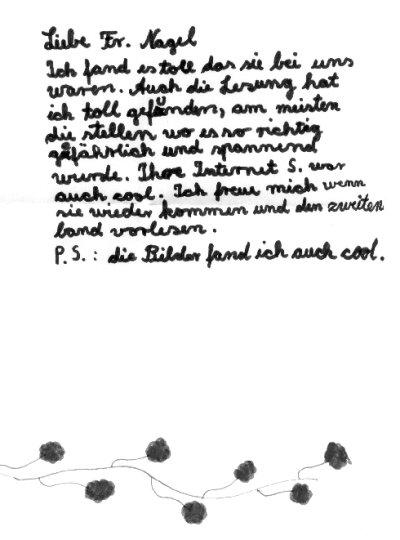 Liebe Fr. Nagel
Ich fand es toll das sie bei uns
waren. Auch die Lesung hat
ich toll gefünden, am meisten
die stellen wo es so richtig
gefährlich und spannend
wurde. Ihre Internet S. war
auch cool. Ich freu mich wenn
sie wieder kommen und den zweiten
band vorlesen.
P.S.: die Bilder fand ich auch cool.